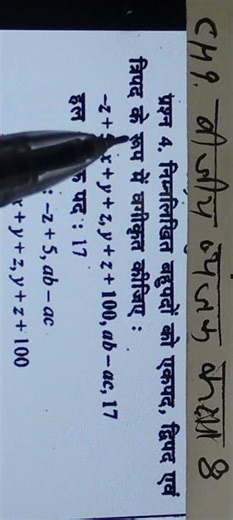 CH 9. बीजीय व्यंजक कक्षा 8
प्रश्न 4. निम्नलिखित बहुपदों को एकपद, द्विपद एवं
त्रिपद के रूप में वर्गीकृत कीजिए :
-z + x + y + z, y + z + 100, ab - ac, 17
हल पद : 17
: -z + 5, ab - ac
x + y + z, y + z + 100